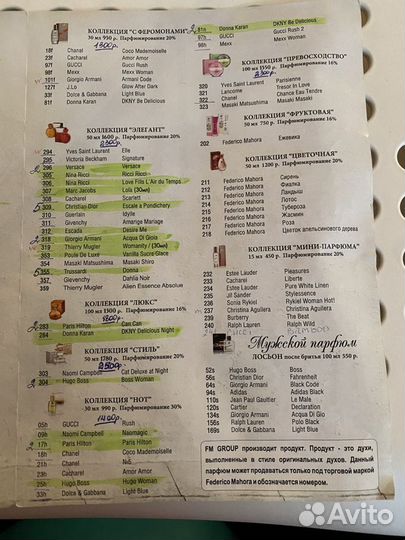 КОЛЛЕКЦИЯ "С ФЕРОМОНАМИ"
30 мл 950 р. Парфюмирование 20%
1300р.
18f Chanel Coco Mademoiselle
23f Cacharel Amor Amor
97f GUCCI Gucci Rush
98f Mexx Mexx Woman
101f Giorgio Armani Armani Code
127f J.Lo Glow After Dark
33f Dolce & Gabbana Light Blue
81f Donna Karan DKNY Be Delicious
КОЛЛЕКЦИЯ "ЭЛЕГАНТ"
50 мл 1600 р. Парфюмирование 20%
294 Yves Saint Laurent Elle
295 Victoria Beckham Signature
296 Versace Versace
305 Nina Ricci Ricci Ricci
306 Nina Ricci Love Fills L'Air du Temps
307 Marc Jacobs Lola (30мл)
308 Cacharel Scarlett
309 Christian Dior Escale a Pondichery
310 Guerlain Idylle
311 Givenchy Amarige Mariage
312 Escada Desire Me
318 Giorgio Armani Acqua Di Gioia
319 Thierry Mugler Womanity / (30мл)
353 Poule De Luxe Vanilla Sucre Glace
354 Masaki Matsushima Masaki Shiro
355 Trussardi Donna
357 Givenchy Dahlia Noir
359 Thierry Mugler Alien Essence Absolue
КОЛЛЕКЦИЯ "ЛЮКС"
100 мл 1300 р. Парфюмирование 16%
283 Paris Hilton Can Can
284 Donna Karan DKNY Delicious Night
КОЛЛЕКЦИЯ "СТИЛЬ"
50 мл 1780 р. Парфюмирование 20%
303 Naomi Campbell Cat Deluxe at Night
304 Hugo Boss Boss Woman
КОЛЛЕКЦИЯ "HOT"
30 мл 990 р. Парфюмирование 30%
1400р.
05h GUCCI Rush
09h Naomi Campbell Naomagic
17h Paris Hilton Paris Hilton
18h Chanel Coco Mademoiselle
21h Chanel №5
23h Cacharel Amor Amor
25h Hugo Boss Hugo Woman
33h Dolce & Gabbana Light Blue
81h Donna Karan DKNY Be Delicious
97h GUCCI Gucci Rush 2
98h Mexx Mexx Woman
КОЛЛЕКЦИЯ "ПРЕВОСХОДСТВО"
100 мл 1550 р. Парфюмирование 16%
320 Yves Saint Laurent Parisienne
321 Lancome Tresor In Love
322 Chanel Chance Eau Tendre
323 Masaki Matsushima Masaki Masaki
КОЛЛЕКЦИЯ "ФРУКТОВАЯ"
50 мл 750 р. Парфюмирование 16%
202 Federico Mahora Ежевика
КОЛЛЕКЦИЯ "ЦВЕТОЧНАЯ"
50 мл 1200 р. Парфюмирование 20%
211 Federico Mahora Сирень
212 Federico Mahora Фиалка
213 Federico Mahora Ландыш
214 Federico Mahora Лотос
215 Federico Mahora Тубероза
216 Federico Mahora Жасмин
217 Federico Mahora Роза
218 Federico Mahora Цветок апельсинового дерева
КОЛЛЕКЦИЯ "МИНИ-ПАРФЮМА"
15 мл 450 р. Парфюмирование 20%
232 Estee Lauder Pleasures
233 Cacharel Liberte
234 Estee Lauder Pure White Linen
235 Jil Sander Stylessence
236 Sonia Rykiel Rykiel Woman Hot!
237 Christina Aguilera Christina Aguilera
239 Burberry The Beat
240 Ralph Lauren Ralph Wild
Мужской парфюм
ЛОСЬОН после бритья 100 мл 550 р.
52s Hugo Boss Boss
56s Christian Dior Fahrenheit
64s Giorgio Armani Black Code
94s Giorgio Armani Attitude
110s Jean Paul Gaultier Le Male
120s Cartier Declaration
134s Giorgio Armani Acqua Di Gio
156s Ralph Lauren Polo Black
169s Dolce & Gabbana Light Blue
FM GROUP производит продукт. Продукт - это духи,
выполненные в стиле оригинальных духов. Данный
парфюм может продаваться только под торговой маркой
Federico Mahora и обозначается номером.
Avito